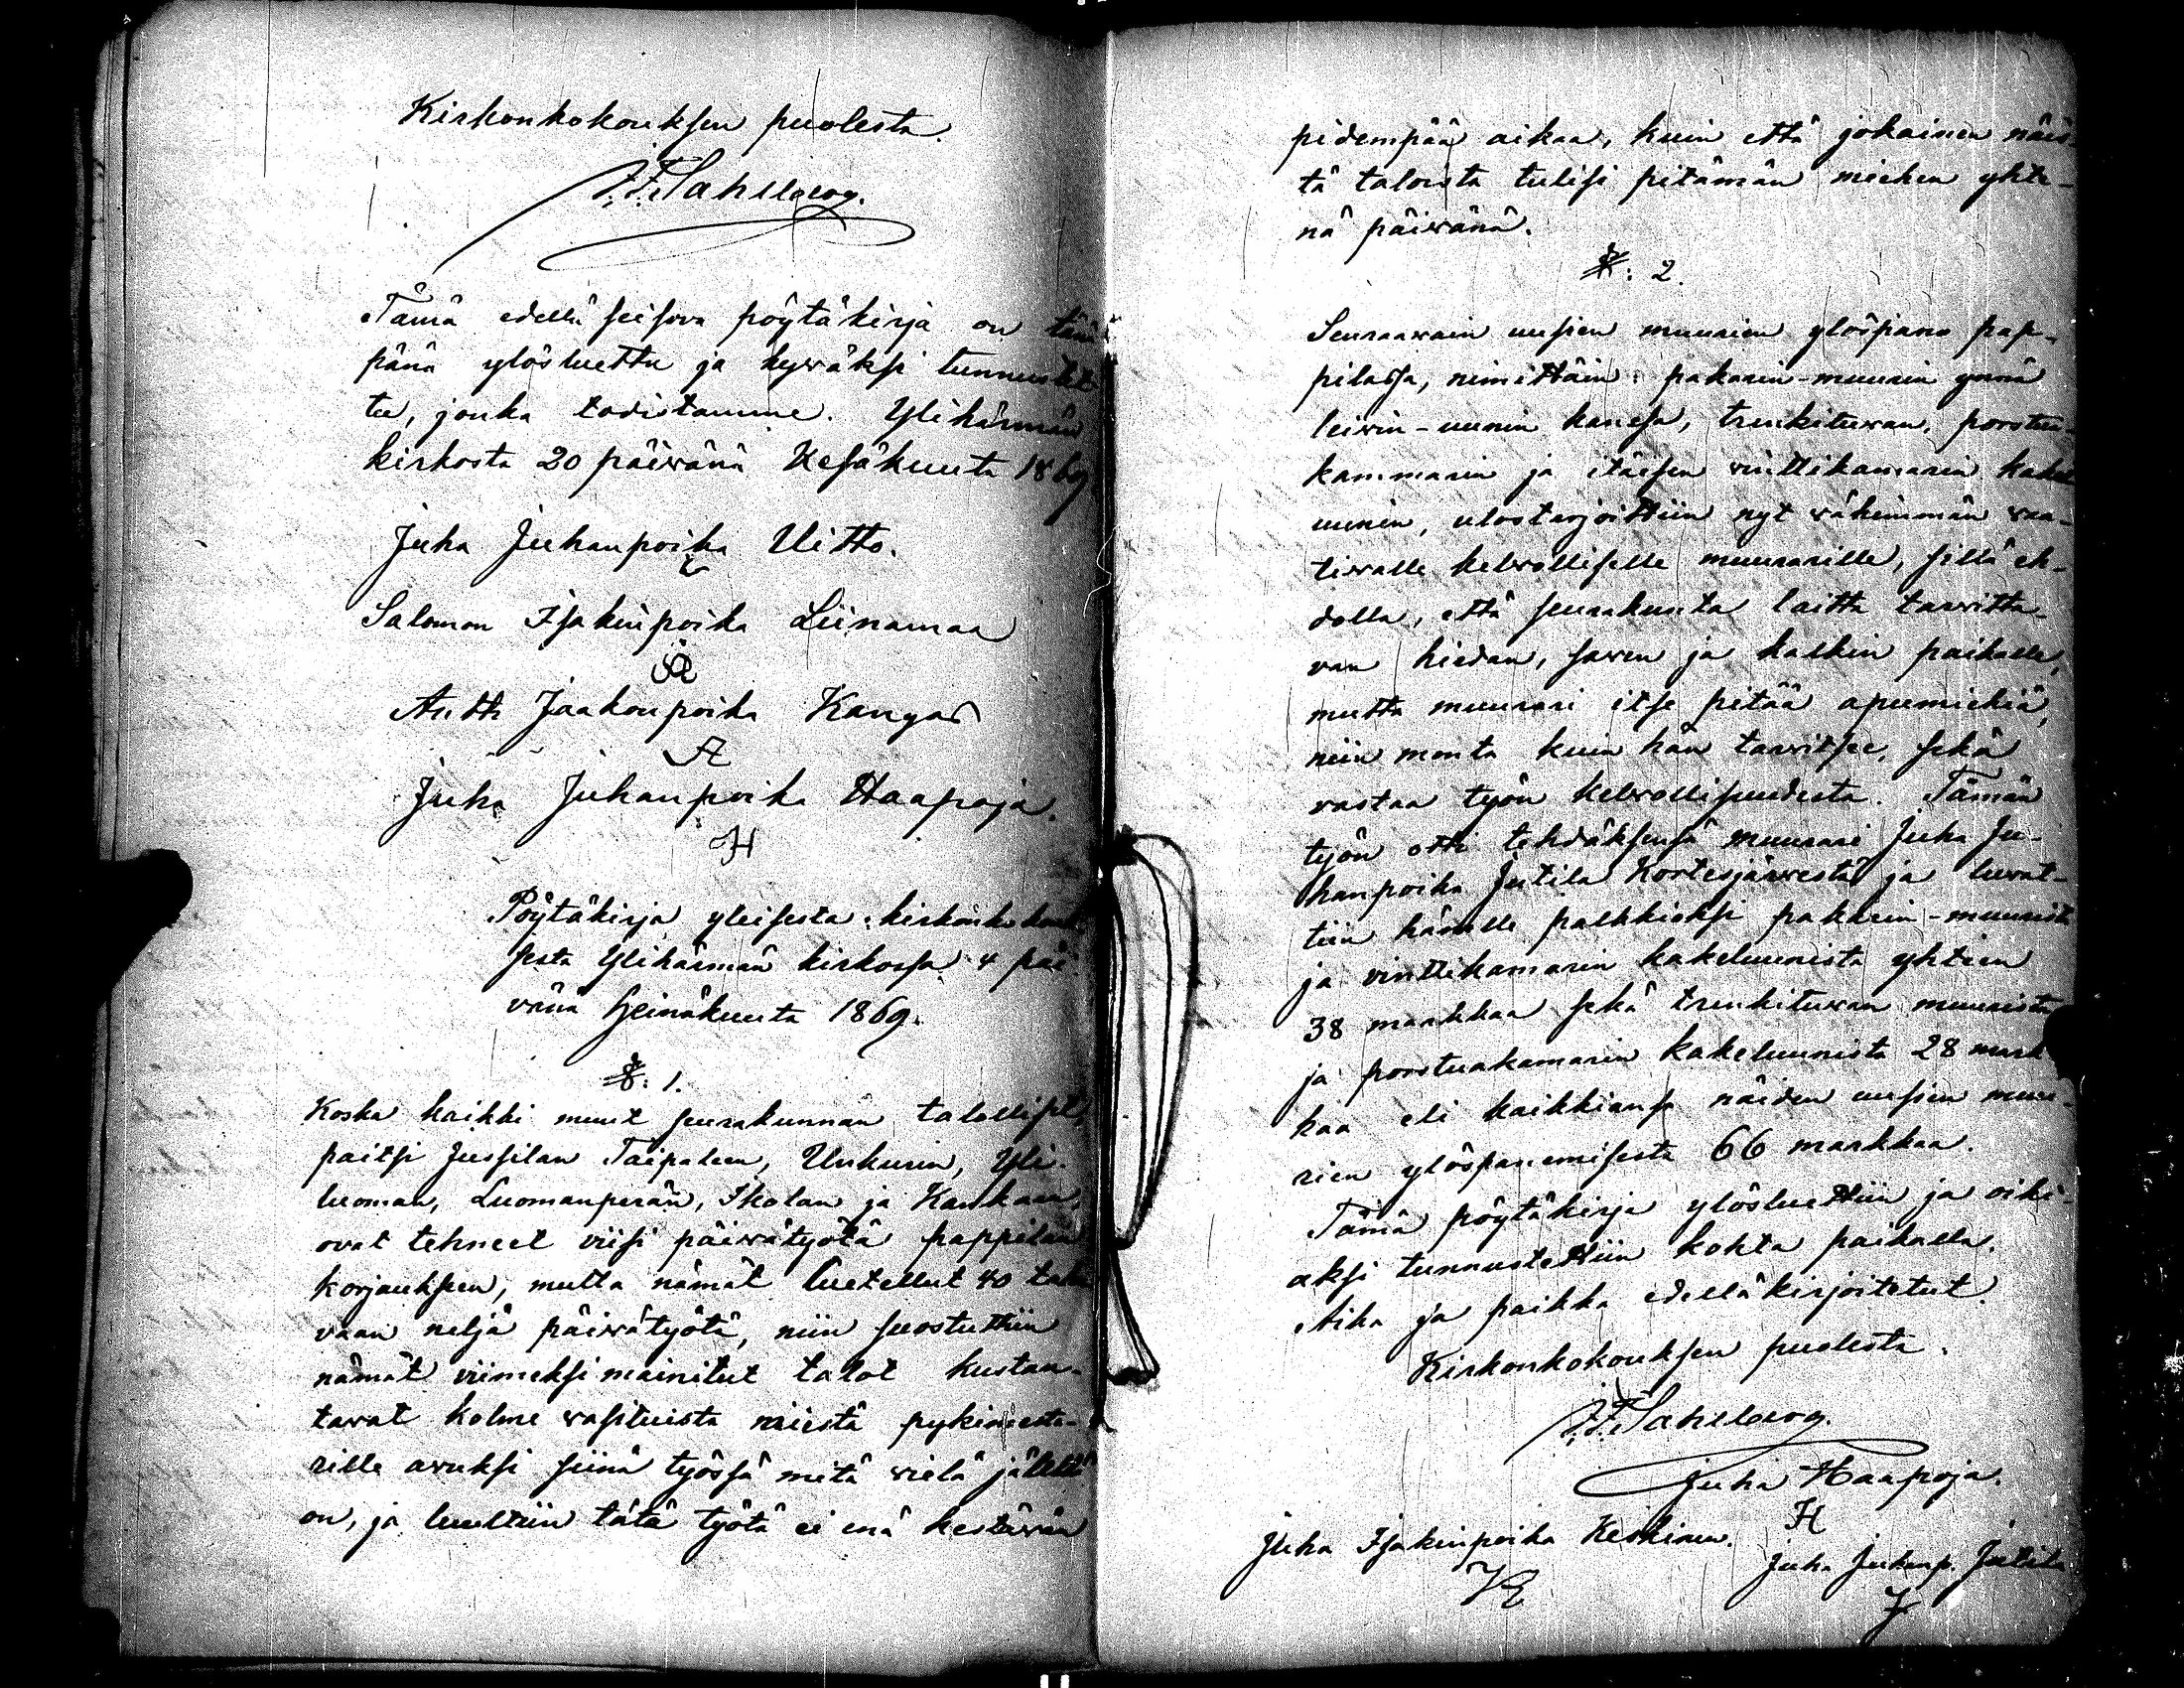 Kirkonkokouksen puolesta.
J.F. Sahlberg.
Tämä edellä seisova pöytäkirja on tänä
pänä ylösluettu ja hyväksi tunnustet-
tu, jonka todistamme. Ylihärmän
kirkosta 20 päivänä Kesäkuuta 1869
Juha Juhanpoika Uitto.
Salomon Isakinpoika Liinamaa
Antti Jaakonpoika Kangas
A
Juha Juhanpoika Haapoja.
H
Pöytäkirja yleisestä kirkonkokouk-
sesta Ylihärmän kirkossa 4 päi-
vänä Heinäkuuta 1869.
§: 1.
Koska kaikki muut seurakunnan talolliset,
paitsi Jussilan Taipaleen, Unkurin, Yli-
luoman, Luomanperän, Ikolan ja Kankaan,
ovat tehneet viisi päivätyötä pappilan
korjauksen, mutta nämät luetellut 40 taloa
vaan neljä päivätyötä, niin suostuttiin
nämät viimeksi mainitut talot kustan-
tavat kolme vasituista miestä pykimesta-
rille avuksi siinä työssä mitä vielä jälellä
on, ja luultiin tätä työtä ei enä kestävän
pidempää aikaa, kuin että jokainen näis-
tä taloista tulisi pitämän miehen yhte-
nä päivänä.
§: 2.
Seuraavain uusien muurien ylöspano pap-
pilassa, nimittäin: pakarin-muurin ynnä
leivin-uunin kanssa, trenkituvan, porstua-
kammarin ja itäisen vinttikamarin kakel-
uunin, ulostarjoittiin nyt vähimmän vaa-
tivalle kelvolliselle muurarille, sillä eh-
dolla, että seurakunta laitta tarvitta-
van hiedan, saven ja kalkin paikalle,
mutta muurari itse pitää apumiehiä,
niin monta kuin hän tarvitsee, sekä
vastaa työn kelvollisuudesta. Tämän
työn otti tehdäksensä muurari Juha Ju-
hanpoika Jutila Kortesjärvestä ja luvat-
tiin hänelle palkkioksi pakarin-muurista
ja vinttikamarin kakeluunista yhteen
38 markkaa sekä trenkituvan muurista
ja porstuakamarin kakeluunista 28 mark-
kaa eli kaikkiansa näiden uusien muu-
rien ylöspanemisesta 66 markkaa.
Tämä pöytäkirja ylösluettiin ja oiki-
aksi tunnustettiin kohta paikalla.
Aika ja paikka edelläkirjoitetut.
Kirkonkokouksen puolesta.
J.F. Sahlberg.
Juha Haapoja.
H
Juha Isakinpoika Keskinen.
Juha Juhanp. Jutila
J